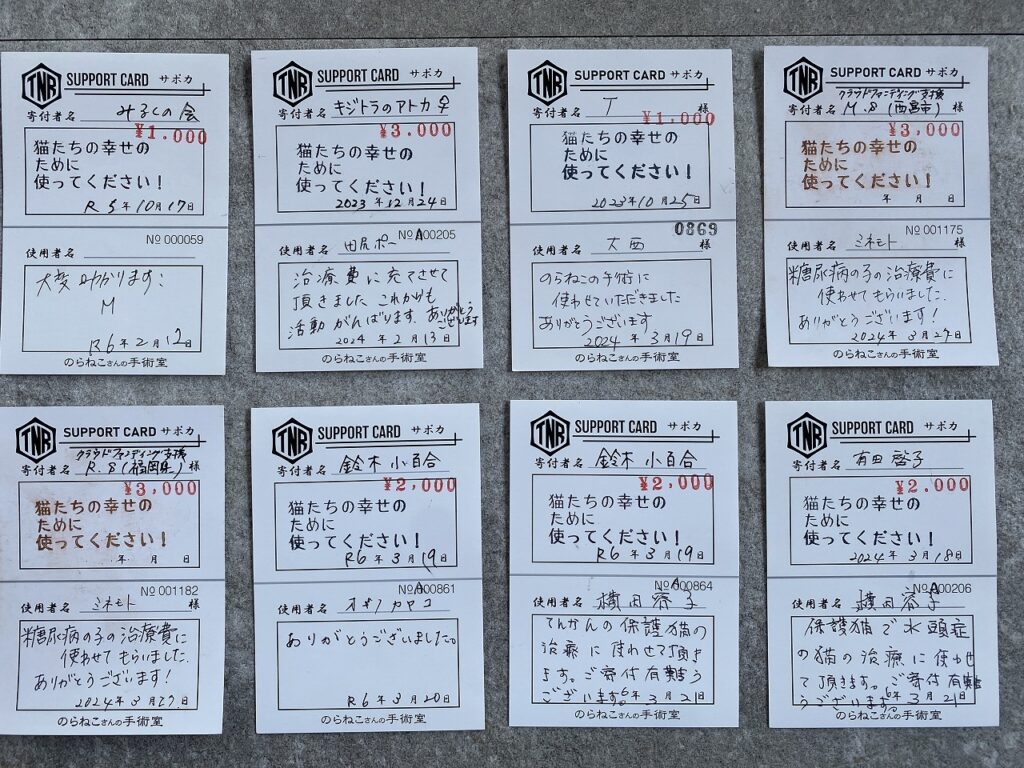 TNR SUPPORT CARD サポカ
寄付者名 みるくの会
¥1.000
猫たちの幸せの
ために
使ってください！
R5年10月17日
No 000059
使用者名
大変助かります：
M
R6年2月12日
のらねこさんの手術室
TNR SUPPORT CARD サポカ
寄付者名 キジトラのアトカ♀
¥3.000
猫たちの幸せの
ために
使ってください！
2023年12月24日
No A00205
使用者名 田尻ポー
治療費に充てさせて
頂きました これからも
活動がんばります ありがとう
ございます
2024年2月13日
のらねこさんの手術室
TNR SUPPORT CARD サポカ
寄付者名 T 様
¥1,000
猫たちの幸せの
ために
使ってください！
2023年10月25日
0869
使用者名 大西 様
のらねこの手術に
使わせていただきました
ありがとうございます
2024年3月19日
のらねこさんの手術室
TNR SUPPORT CARD サポカ
クラウドファンディング支援
寄付者名 M.8 (西宮市) 様
¥3,000
猫たちの幸せの
ために
使ってください！
年 月 日
No 001175
使用者名 ミネモト 様
糖尿病の子の治療費に
使わせてもらいました.
ありがとうございます！
2024年3月27日
のらねこさんの手術室
TNR SUPPORT CARD サポカ
クラウドファンディング支援
寄付者名 R.8 (福岡県) 様
¥3,000
猫たちの幸せの
ために
使ってください！
年 月 日
No 001182
使用者名 ミネモト 様
糖尿病の子の治療費に
使わせてもらいました.
ありがとうございます！
2024年3月27日
のらねこさんの手術室
TNR SUPPORT CARD サポカ
寄付者名 鈴木 小百合
¥2,000
猫たちの幸せの
ために
使ってください！
R6年3月19日
No A00861
使用者名 オギノカヤコ
ありがとうございました。
R6年3月20日
のらねこさんの手術室
TNR SUPPORT CARD サポカ
寄付者名 鈴木 小百合
¥2,000
猫たちの幸せの
ために
使ってください！
R6年3月19日
No A00864
使用者名 横田容子
てんかんの保護猫の
治療に使わせて頂き
ます。ご寄付有難う
ございます。6年3月21日
のらねこさんの手術室
TNR SUPPORT CARD サポカ
寄付者名 有田啓子
¥2.000
猫たちの幸せの
ために
使ってください！
2024年3月18日
No A00206
使用者名 横田容子
保護猫で水頭症
の猫の治療に使わせ
て頂きます。ご寄付有難
うございます。6年3月21日
のらねこさんの手術室